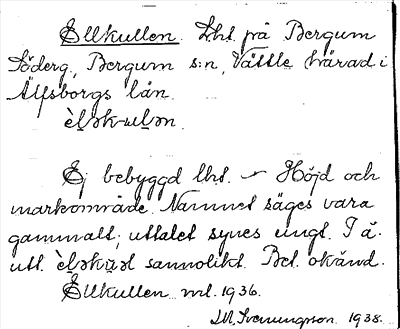 Ellkullen. Lht. på Bergum
Söderg., Bergum s:n, Vättle härad i
Älfsborgs län.
Ej bebyggd lht. – Höjd och
markområde. Namnet säges vara
gammalt; uttalet synes ungt. I ä.
utt. sannolikt. Bet. okänd.
Ellkullen ml. 1936.
1938.